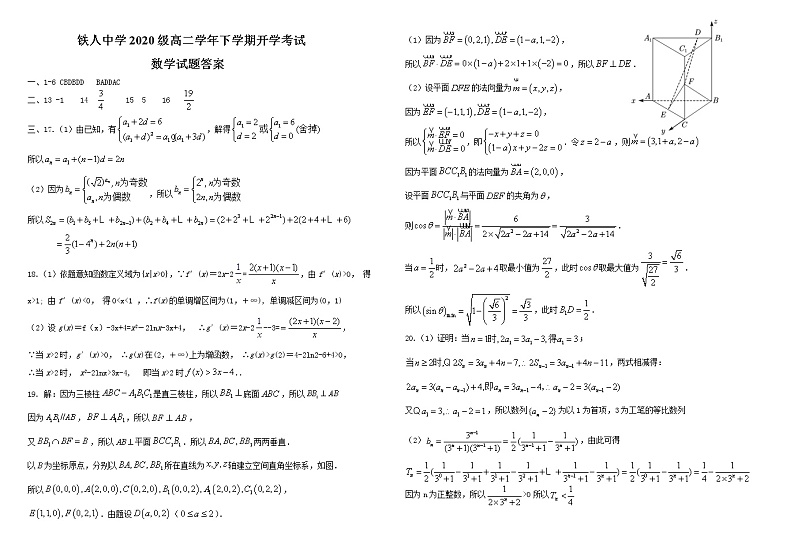 铁人中学2020级高二学年下学期开学考试
数学试题答案
一、1-6 CBDBDD BADDAC
二、13 -1 14 3/4 15 5 16 19/2
三、17.（1）由已知，有{a₁+2d=6 (a₁+d)²=a₁(a₁+3d)，解得{a₁=2 d=2 或{a₁=6 d=0 (舍掉)
所以aₙ=a₁+(n-1)d=2n
（2）因为bₙ={(√2)^aₙ,n为奇数 aₙ,n为偶数，所以bₙ={2ⁿ,n为奇数 2n,n为偶数
所以S₂ₙ=(b₁+b₃+L+b₂ₙ₋₁)+(b₂+b₄+L+b₂ₙ)=(2+2³+L+2²ⁿ⁻¹)+2(2+4+L+6)
=2/3(1-4ⁿ)+2n(n+1)
18.（1）依题意知函数定义域为{x|x>0}，∵f′(x)=2x-2 1/x=2(x+1)(x-1)/x，由 f′(x)>0，得
x>1；由 f′(x)<0，得0<x<1，∴f(x)的单调增区间为(1，+∞)，单调减区间为(0，1)
（2）设 g(x)=f(x)-3x+4=x²-2lnx-3x+4，∴g′(x)=2x-2 1/x--3=(2x+1)(x-2)/x，
∵当x>2时，g′(x)>0，∴g(x)在(2，+∞)上为增函数，∴g(x)>g(2)=4-2ln2-6+4>0，
∴当x>2时，x²-2lnx>3x-4，即当x>2时f(x)>3x-4．.
19.解：因为三棱柱ABC-A₁B₁C₁是直三棱柱，所以BB₁⊥底面ABC，所以BB₁⊥AB
因为A₁B₁//AB，BF⊥A₁B₁，所以BF⊥AB，
又BB₁∩BF=B，所以AB⊥平面BCC₁B₁．所以BA,BC,BB₁两两垂直．
以B为坐标原点，分别以BA,BC,BB₁所在直线为x,y,z轴建立空间直角坐标系，如图．
所以B(0,0,0),A(2,0,0),C(0,2,0),B₁(0,0,2),A₁(2,0,2),C₁(0,2,2)，
E(1,1,0),F(0,2,1)．由题设D(a,0,2)（0≤a≤2）．
（1）因为BF=(0,2,1),DE=(1-a,1,-2)，
所以BF·DE=0×(1-a)+2×1+1×(-2)=0，所以BF⊥DE．
（2）设平面DFE的法向量为m=(x,y,z)，
因为EF=(-1,1,1),DE=(1-a,1,-2)，
所以{m·EF=0 m·DE=0，即{-x+y+z=0 (1-a)x+y-2z=0．令z=2-a，则m=(3,1+a,2-a)
因为平面BCC₁B₁的法向量为BA=(2,0,0)，
设平面BCC₁B₁与平面DEF的夹角为，
则cosθ=|m·BA|/|m|·|BA|=6/2×√2a²-2a+14=3/√2a²-2a+14．
当a=1/2时，2a²-2a+4取最小值为27/2，此时cosθ取最大值为3/√27/2=√6/3．
所以(sinθ)min=√1-(√6/3)²=√3/3，此时B₁D=1/2．
20.（1）证明：当n=1时,2a₁=3a₁-3,得a₁=3；
当n≥2时,Q 2Sₙ=3aₙ+4n-7,∴2Sₙ₋₁=3aₙ₋₁+4n-11，两式相减得：
2aₙ=3(aₙ-aₙ₋₁)+4,即aₙ=3aₙ₋₁-4,∴aₙ-2=3(aₙ₋₁-2)
又Q a₁=3,∴a₁-2=1，所以数列{aₙ-2}为以1为首项，3为工笔的等比数列
（2）bₙ=3ⁿ⁻¹/(3ⁿ+1)(3ⁿ⁻¹+1)=1/2(1/3ⁿ⁻¹+1-1/3ⁿ+1)，由此可得
Tₙ=1/2(1/3⁰+1-1/3¹+1+1/3¹+1-1/3²+1+L+1/3ⁿ⁻¹+1-1/3ⁿ+1)=1/2(1/3⁰+1-1/3ⁿ+1)=1/4-1/2×3ⁿ+2
因为n为正整数，所以1/2×3ⁿ+2>0 所以Tₙ<1/4
z
D
A₁
B₁
C₁
F
x
A
B
E
C
y